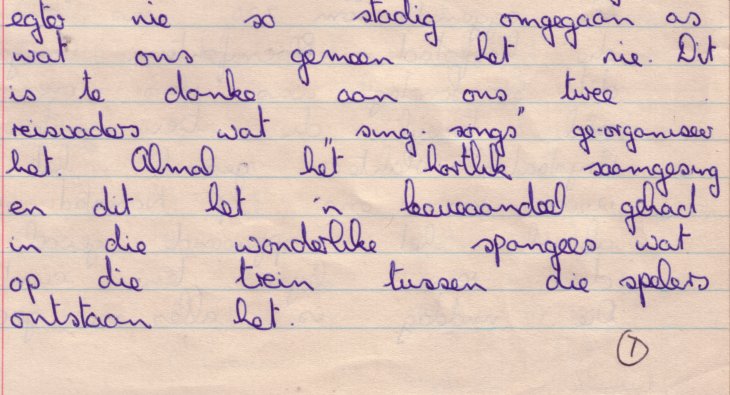 egter nie so stadig omgegaan as
wat ons gemeen het nie. Dit
is te danke aan ons twee
reisvaders wat "sing-songs" ge-organiseer
het. Almal het hartlik saamgesing
en dit het 'n leeueaandeel gehad
in die wonderlike spangees wat
op die trein tussen die spelers
ontstaan het.
1